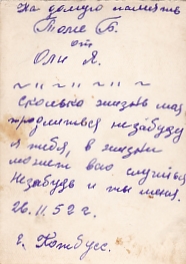 На долгую память
Толе Б.
от
Оли Я.
~ " ~ " ~ " ~
сколько жизнь моя
продлиться незабуду
я тебя, в жизни
может всио случиться
Незабудь и ты меня.
26.11.52 г.
г. Котбусс.